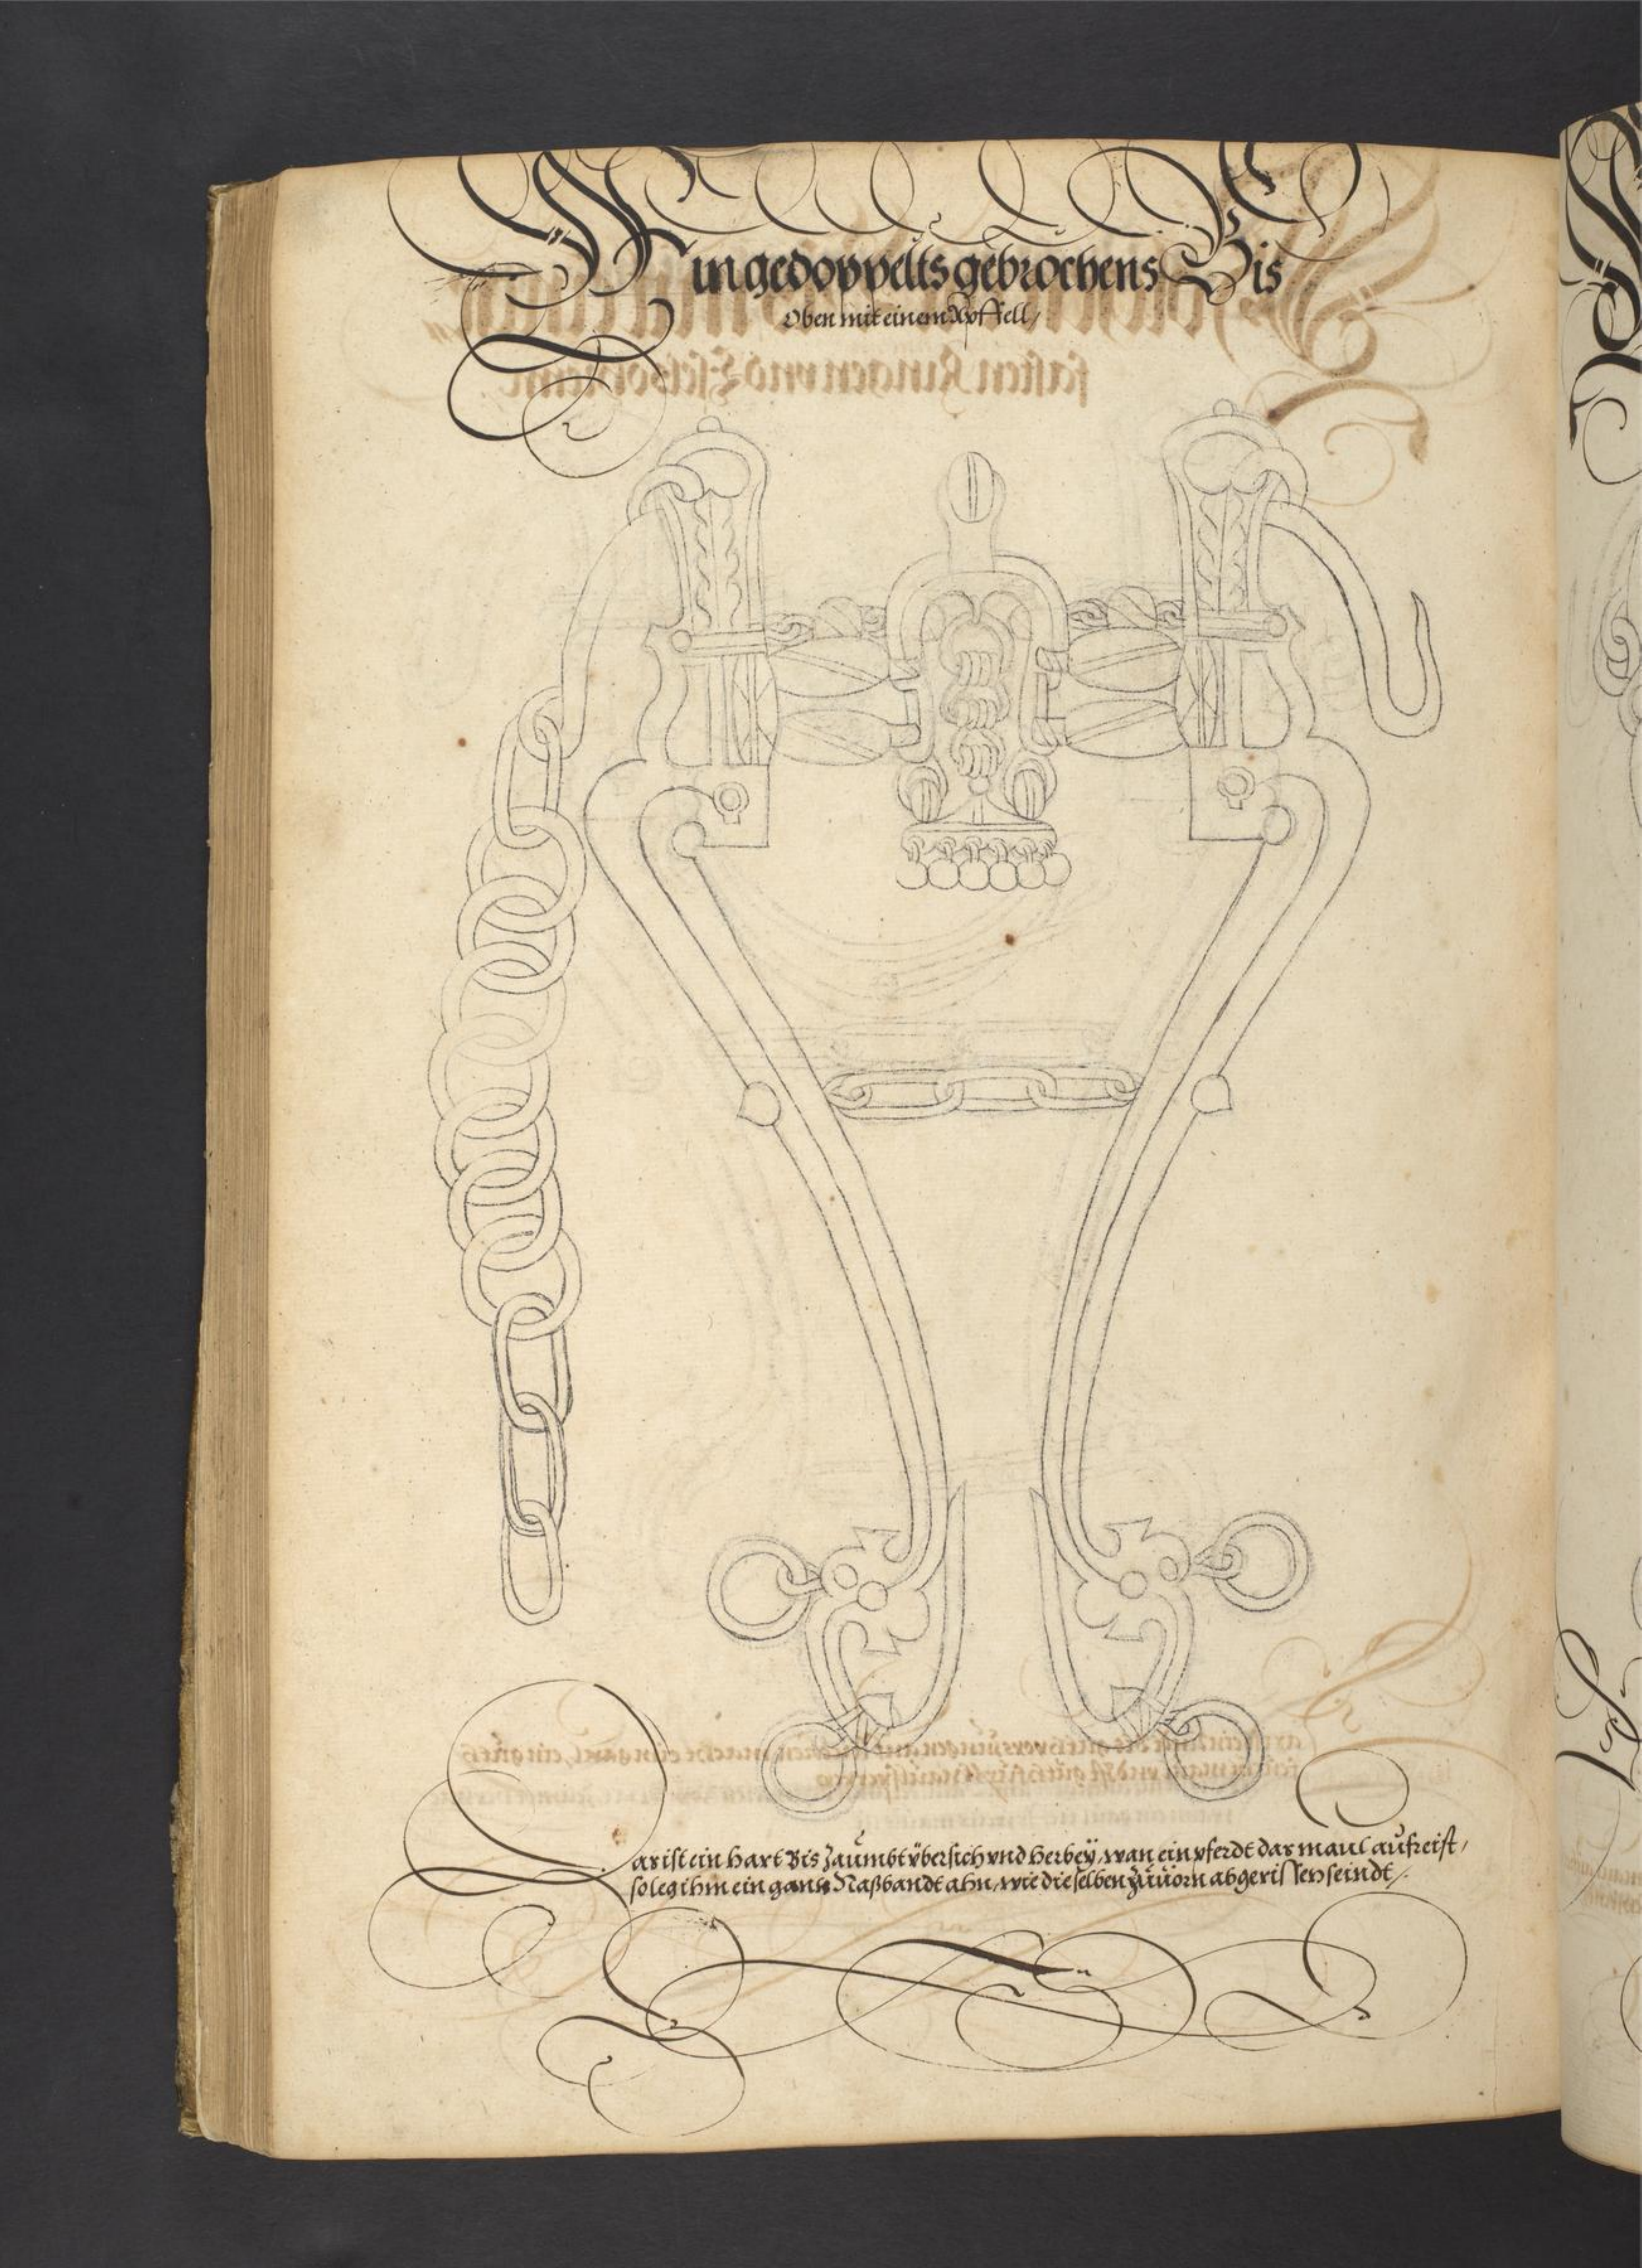 Ein gedoppelts gebrochens Bis
Oben mit einem Apffell/
Das ist ein hart Bis zaumbt übersich vnd herbeÿ, wan ein pferdt das maul aufreist,
so leg ihm ein gantz Naßbandt ahn, wie dieselben züuorn abgerissen seindt/.